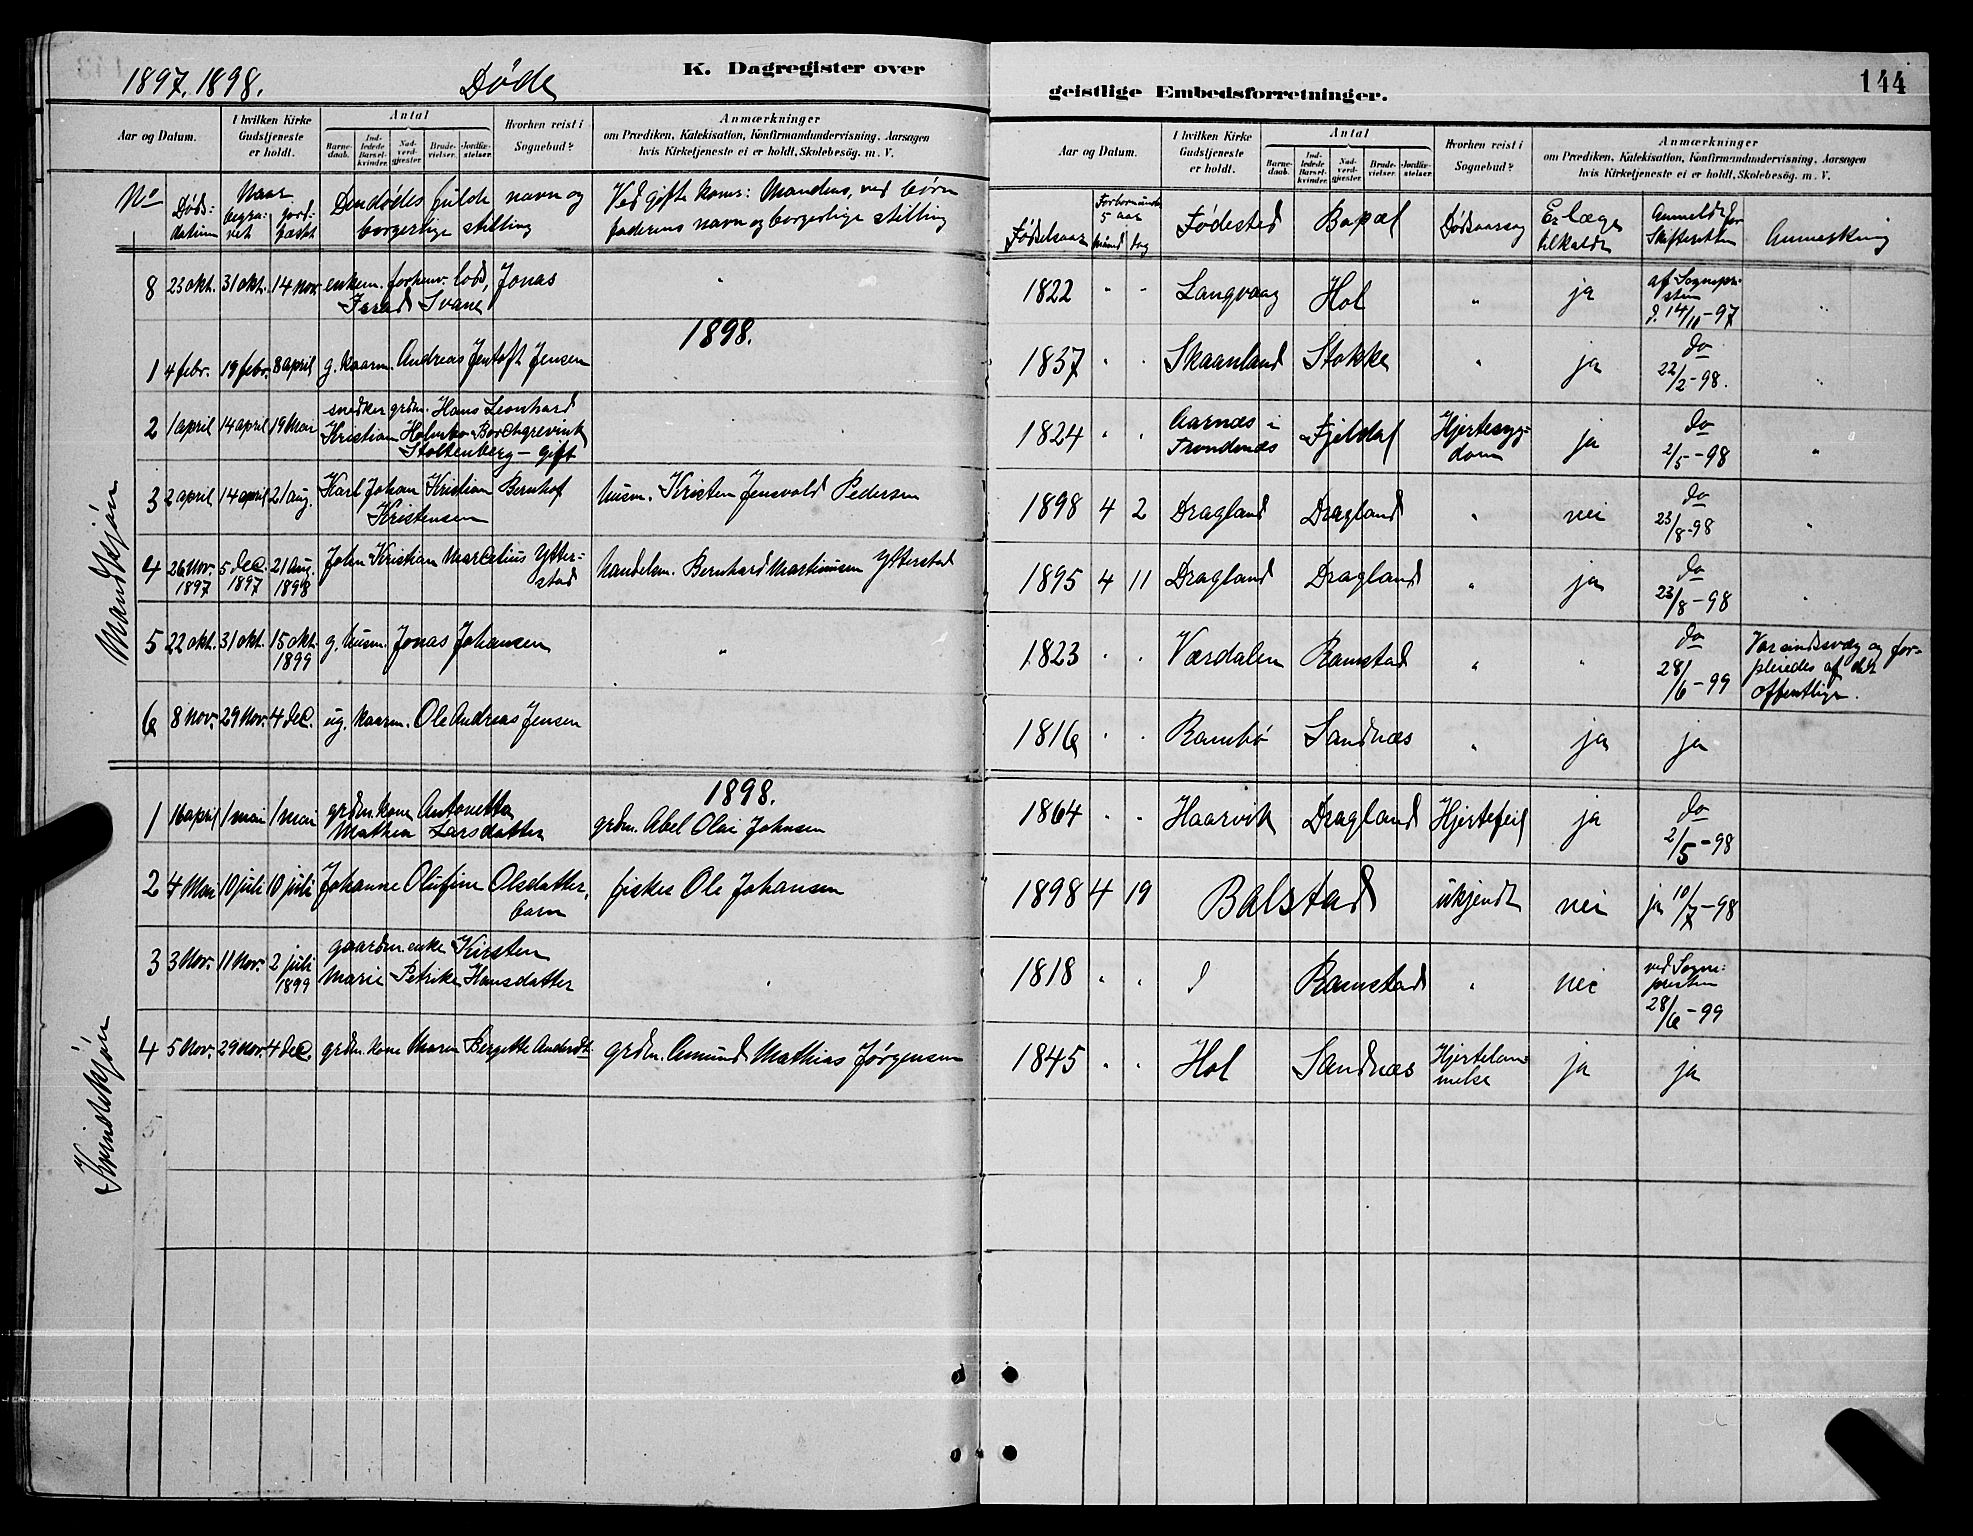 1897, 1898.
Døde
K. Dagregister over
Aar og Datum.
I hvilken Kirke Gudstjeneste er holdt.
Antal
Barnedaab.
Indledede Barselkvinder.
Nadverdgjester.
Brudevielser.
Jordfæstelser.
Hvorhen reist i Sognebud?
Anmærkninger
om Prædiken, Katekisation, Konfirmandundervisning, Aarsagen
hvis Kirketjeneste ei er holdt, Skolebesög. m. V.
No Dødsdatum Naar begravet jordfæstet Den dødes fulde navn og borgerlige stilling Ved gifte koner: Mandens, ved børn faderens navn og borgerlige stilling
Mandkjøn
8 23 okt. 31 okt. 14 nov. enkem. forhenv. lods, Jonas
Israel Svane "
1898.
1 4 febr. 19 febr. 8 april g. kaarm. Andreas Jentoft Jensen
2 1 april 14 april 19 Mai snedker grdm. Hans Leonhard
Kristian Holmbo Borchgrevink
Stoltenberg - Gift
3 2 april 14 april 21 aug. Karl Johan Kristian Bernhof
Kristensen husm. Kristen Jensvold Pedersen
4 26 Nov. 1897 5 dec. 1897 21 Aug. 1898 John Kristian Marcelius Ytterstad handelsm. Bernhard Martinusen Ytterstad
5 22 okt. 31 okt. 15 okt. 1899 g. husm. Jonas Johansen "
6 8 Nov. 29 Nov. 4 dec. ug. kaarm. Ole Andreas Jensen
Kvindekjøn
1898.
1 16 april 1 mai 1 mai grdm. kone Antonetta
Mathea Larsdatter grdm. Abel Olai Johnsen
2 4 Mai 10 juli 10 juli Johanne Olufine Olsdatter,
barn fisker Ole Johansen
3 3 Nov. 11 Nov. 2 juli 1899 gaardm. enke Kirsten
Marie Petrike Hansdatter "
4 5 Nov. 29 Nov. 4 dec. grdm. kone Maren Bergette Andersdt. grdm. Amund Mathias Jørgensen
geistlige Embedsforretninger.
144
Aar og Datum.
I hvilken Kirke Gudstjeneste er holdt.
Antal
Barnedaab.
Indledede Barselkvinder.
Nadverdgjester.
Brudevielser.
Jordfæstelser.
Hvorhen reist i Sognebud?
Anmærkninger
om Prædiken, Katekisation, Konfirmandundervisning, Aarsagen
hvis Kirketjeneste ei er holdt, Skolebesög. m. V.
Fødselsaar For børn under 5 aar maaned dag Fødested Bopæl Dødsaarsag Er læge tilkaldt Anmeldt for Skifteretten Anmerkning
1822 " " Langvaag Hol " ja af Sognepresten d. 14/11-97 "
1837 " " Skaanland Stokke " ja do 22/2-98. "
1824 " " Aarnæs i Trondenæs Fjeldal Hjertesygdom ja do 2/5-98 "
1898 4 2 Dragland Dragland " nei do 23/8-98 "
1895 4 11 Dragland Dragland " ja do 23/8-98 "
1823 " " Værdalen Ramstad " " do 28/6-99 Var sindssvag og forpleiedes af det offentlige.
1816 " " Rambø Sandnæs " ja ja
1864 " " Haarvik Dragland Hjertefeil ja do 2/5-98
1898 4 19 Balstad ukjendt nei ja 10/7-98
1818 " " Ramstad " nei ved Sognepresten 28/6-99
1845 " " Hol Sandnæs Hjertelammelse ja ja